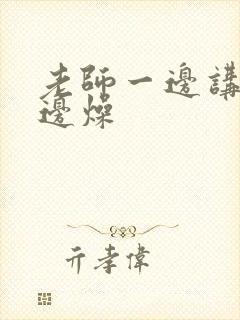 老師一邊講
邊燥
亓孝偉